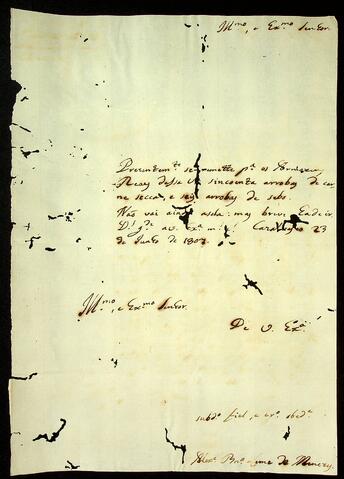 Illmo, e Exmo Senhor
Prezentemte se remette pa os Armazens
Reaes desta Va sincoenta arrobas de car
ne secca, e seis arrobas de sebo.
Não vai ainda mas breve
Ds gde a V. Exa 23
de Junho de 1802
Illmo, e Exmo Senhor
De V. Exa
subdo fiel, e obedte
de Menezes